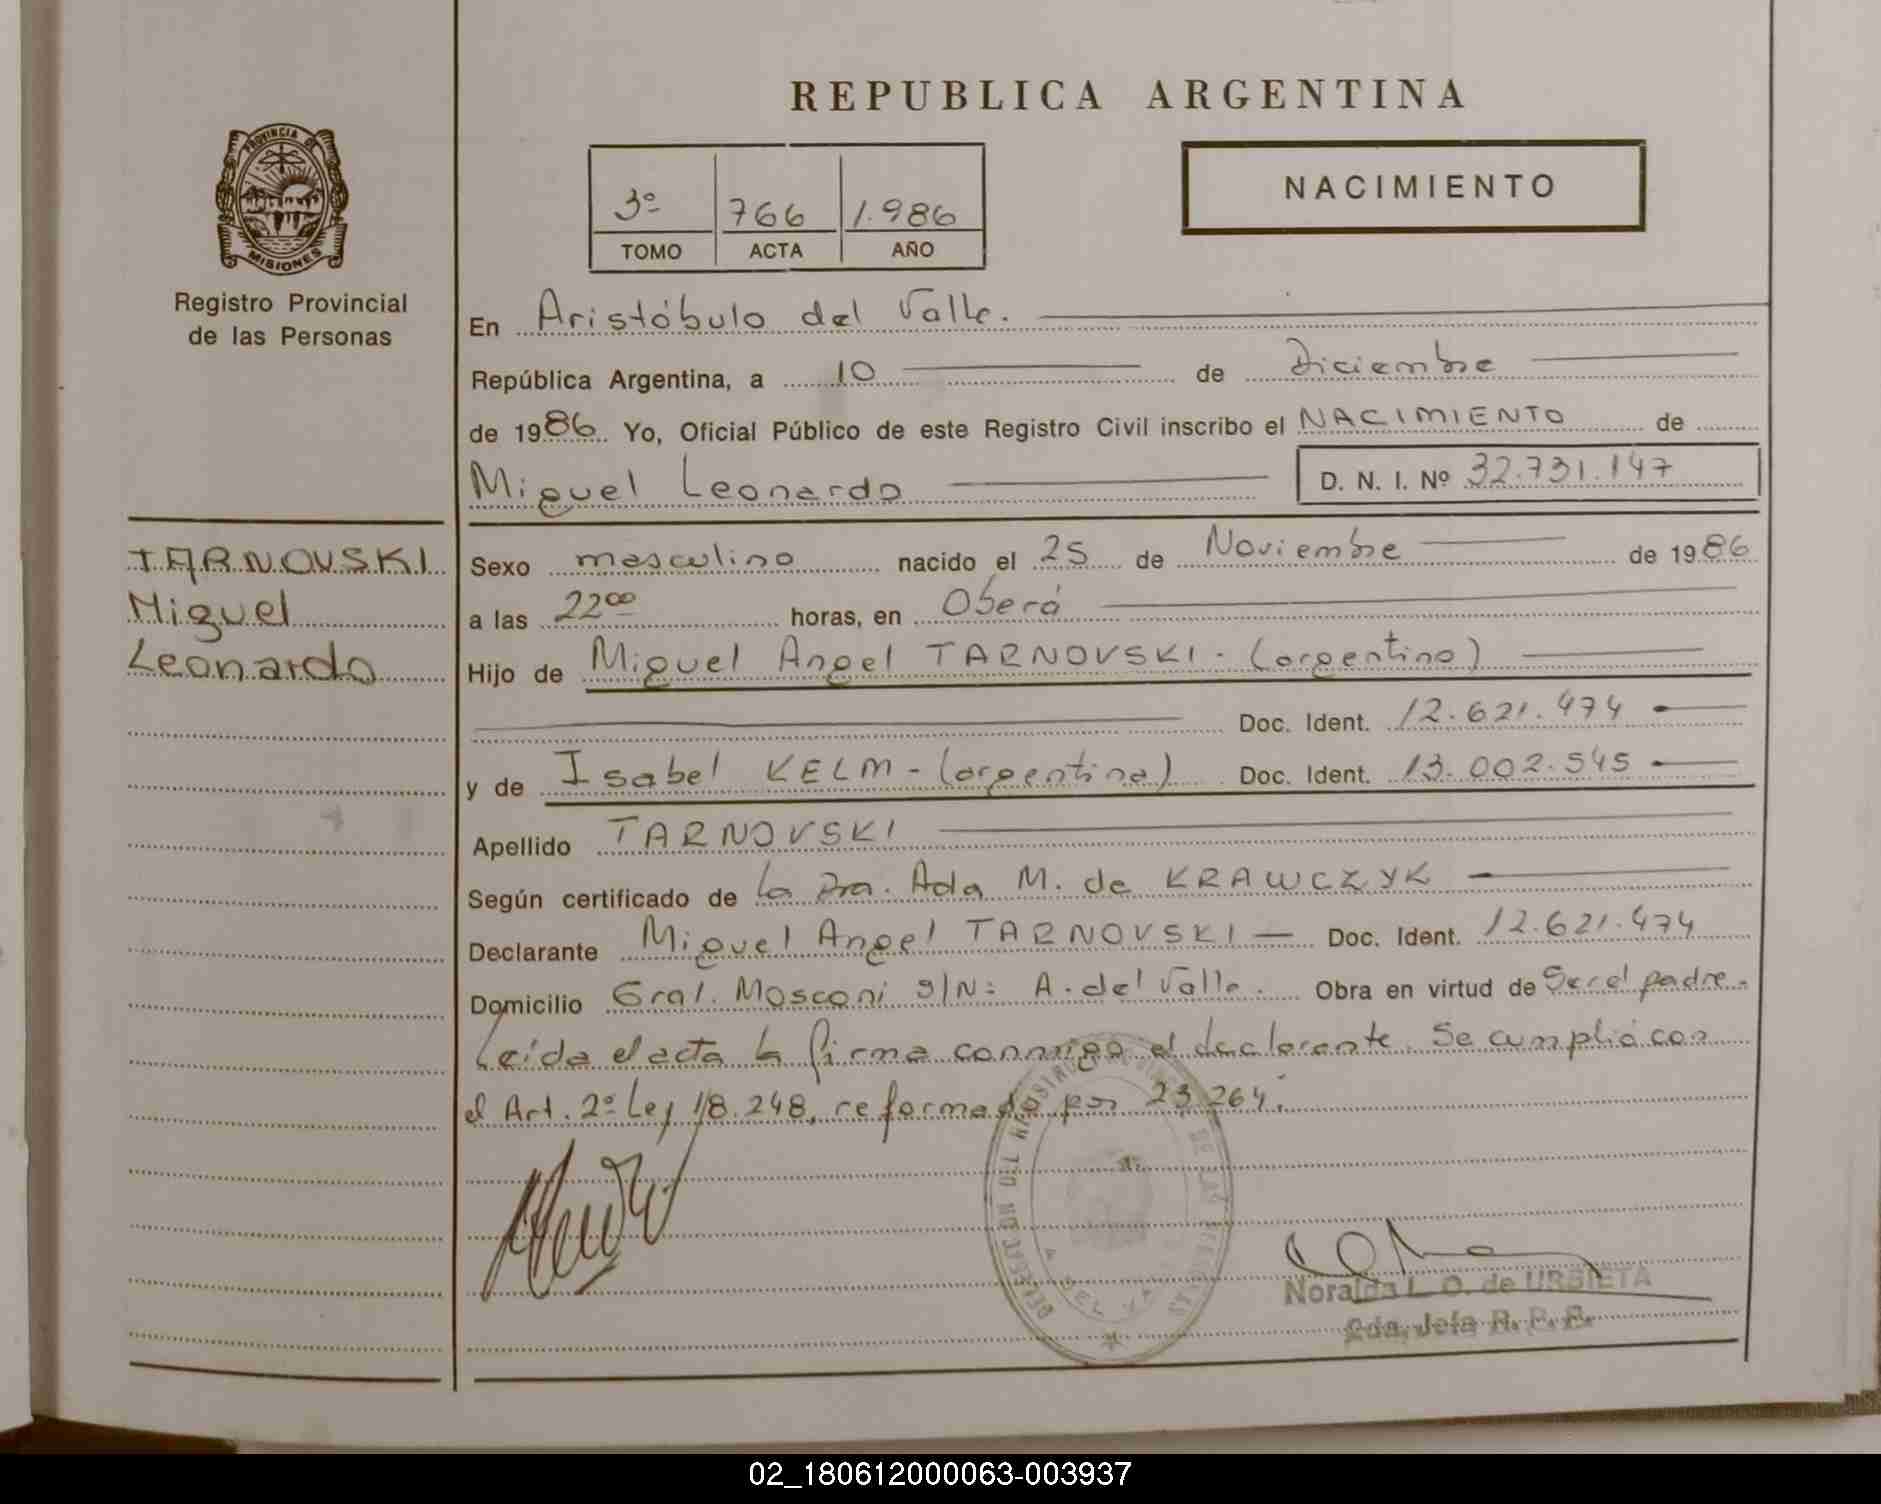 REPUBLICA ARGENTINA
PROVINCIA DE
MISIONES
Registro Provincial
de las Personas
3º 766 1.986
TOMO ACTA AÑO
NACIMIENTO
En Aristóbulo del Valle.
República Argentina, a 10 de Diciembre
de 1986. Yo, Oficial Público de este Registro Civil inscribo el NACIMIENTO de
Miguel Leonardo D. N. I. Nº 32.731.147
TARNOVSKI
Miguel
Leonardo
Sexo masculino nacido el 25 de Noviembre de 1986
a las 22ºº horas, en Oberá
Hijo de Miguel Angel TARNOVSKI - (argentino)
Doc. Ident. 12.621.474
y de Isabel KELM - (argentina) Doc. Ident. 13.002.545
Apellido TARNOVSKI
Según certificado de la Dra. Ada M. de KRAWCZYK
Declarante Miguel Angel TARNOVSKI Doc. Ident. 12.621.474
Domicilio Gral. Mosconi s/N: A. del Valle. Obra en virtud de Ser el padre.
Leída el acta la firma conmigo el declarante. Se cumplió con
el Art. 2º Ley 18.248, reformado por 23.264.
Noralda L. O. de URBIETA
Jefa R. P. P.
02_180612000063-003937